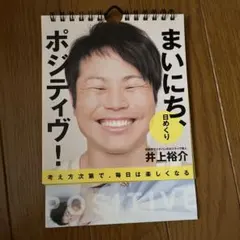 まいにち、
日めくり
ポジティヴ！
井上裕介
考え方次第で、毎日は楽しくなる
POSITIVE